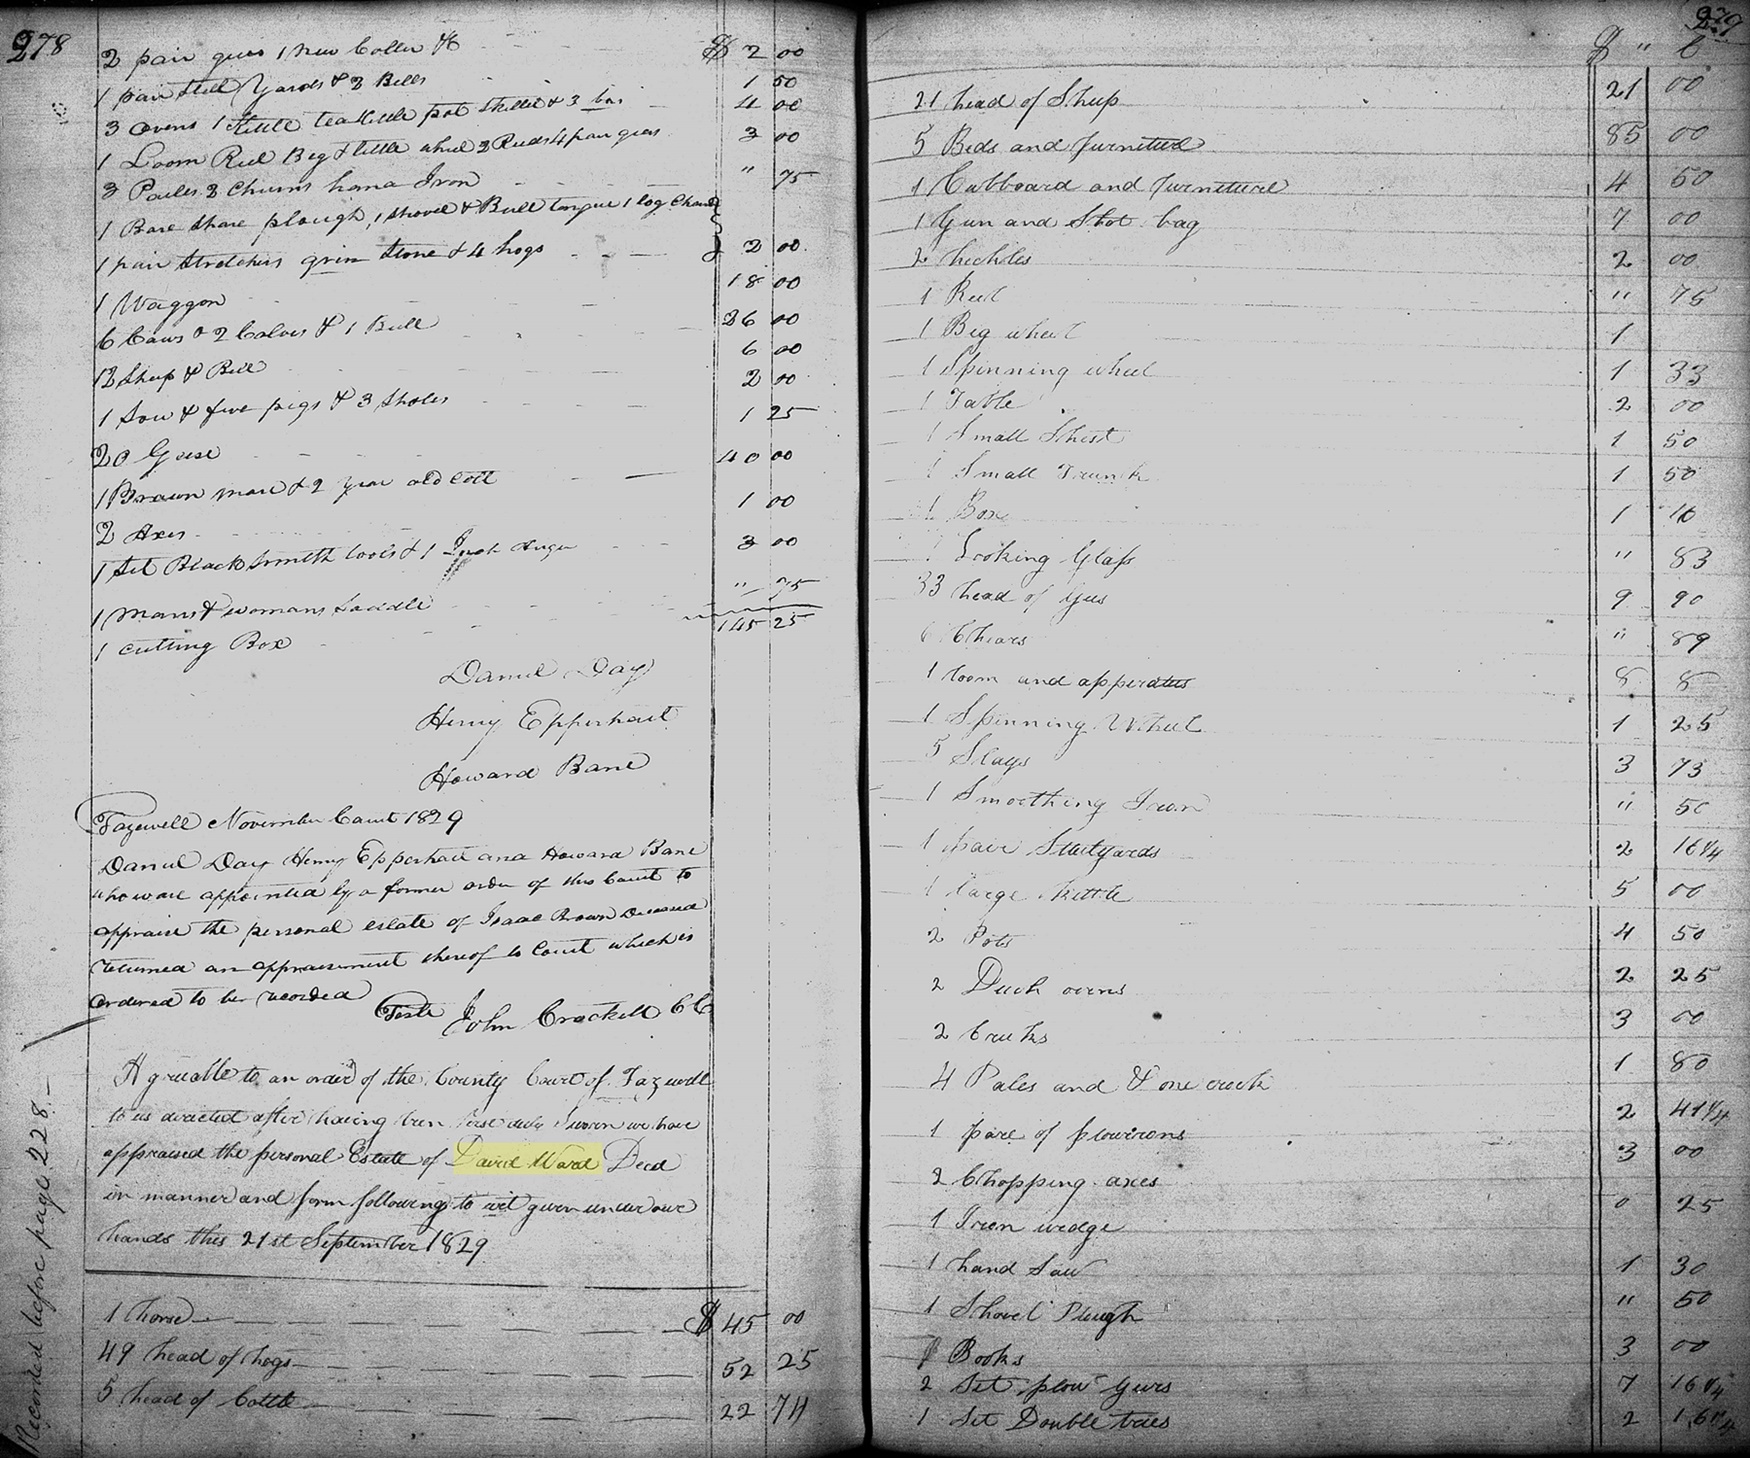 278
2 pair gears 1 new Coller &c $ 2 00
1 pair Still Yards & 2 Bells 1 50
3 ovens 1 Kittle tea Kittle pot Skillet & 3 4 00
1 Loom Reel Big & little wheel 3 Reeds 4 pair gears 3 00
3 Pailes 2 Churns hand Iron " 75
1 Bare Share plough, 1 Shovel & Bull tongue 1 log Chain
1 pair Stretchers grin Stone & 4 hogs 2 00
1 Waggon 18 00
6 Cows & 2 Calves & 1 Bull 26 00
12 Sheep & Bell 6 00
1 Sow & five pigs & 3 Shotes 2 00
20 Geese 1 25
1 Brown mare & 2 year old Colt 40 00
2 Axes 1 00
1 Set Black Smith tools & 1 Inch Auger 3 00
1 Mans & womans Saddle
1 Cutting Box " 75
145 25
Daniel Day
Henry Epperhart
Howard Bane
Tazewell November Court 1829
Daniel Day Henry Epperhart and Howard Bane
who ware appointed by a former order of this Court to
appraise the personal estate of Isaac Brown Deceased
returned an appraisement thereof to Court which is
ordered to be recorded
Teste John Crockett CC
Agreeable to an order of the County Court of Tazewell
to us directed after having been first duly Sworn we have
appraised the personal Estate of David Ward Decd
in manner and form following to wit given under our
hands this 21st September 1829
1 horse $ 45 00
49 head of hogs 52 25
5 head of Cattle 22 74
Recorded before page 228
279
$ " C
21 head of Sheep 21 00
5 Beds and furniture 85 00
1 Cubboard and furniture 4 50
1 Gun and Shot bag 7 00
2 hechles 2 00
1 Reel " 75
1 Big wheel 1
1 Spinning wheel 1 33
1 Table 2 00
1 Small Chest 1 50
1 Small Trunk 1 50
1 Box 1 16
1 Looking Glass " 83
33 head of Gees 9 90
6 Chears " 89
1 loom and apperatus 8 8
1 Spinning Wheel 1 25
5 Slays 3 73
1 Smoothing Iron " 50
1 pair Stutyards 2 16 1/4
1 large kettle 5 00
2 Pots 4 50
2 Duch ovens 2 25
2 3 00
4 Pales and & one crock 1 80
1 pare of plowirons 2 41 1/4
2 Chopping axes 3 00
1 Iron wedge 0 25
1 hand Saw 1 30
1 Shovel Plough " 50
Books 3 00
2 Set plow Gears 7 16 1/4
1 Set Double trees 2 16 1/4